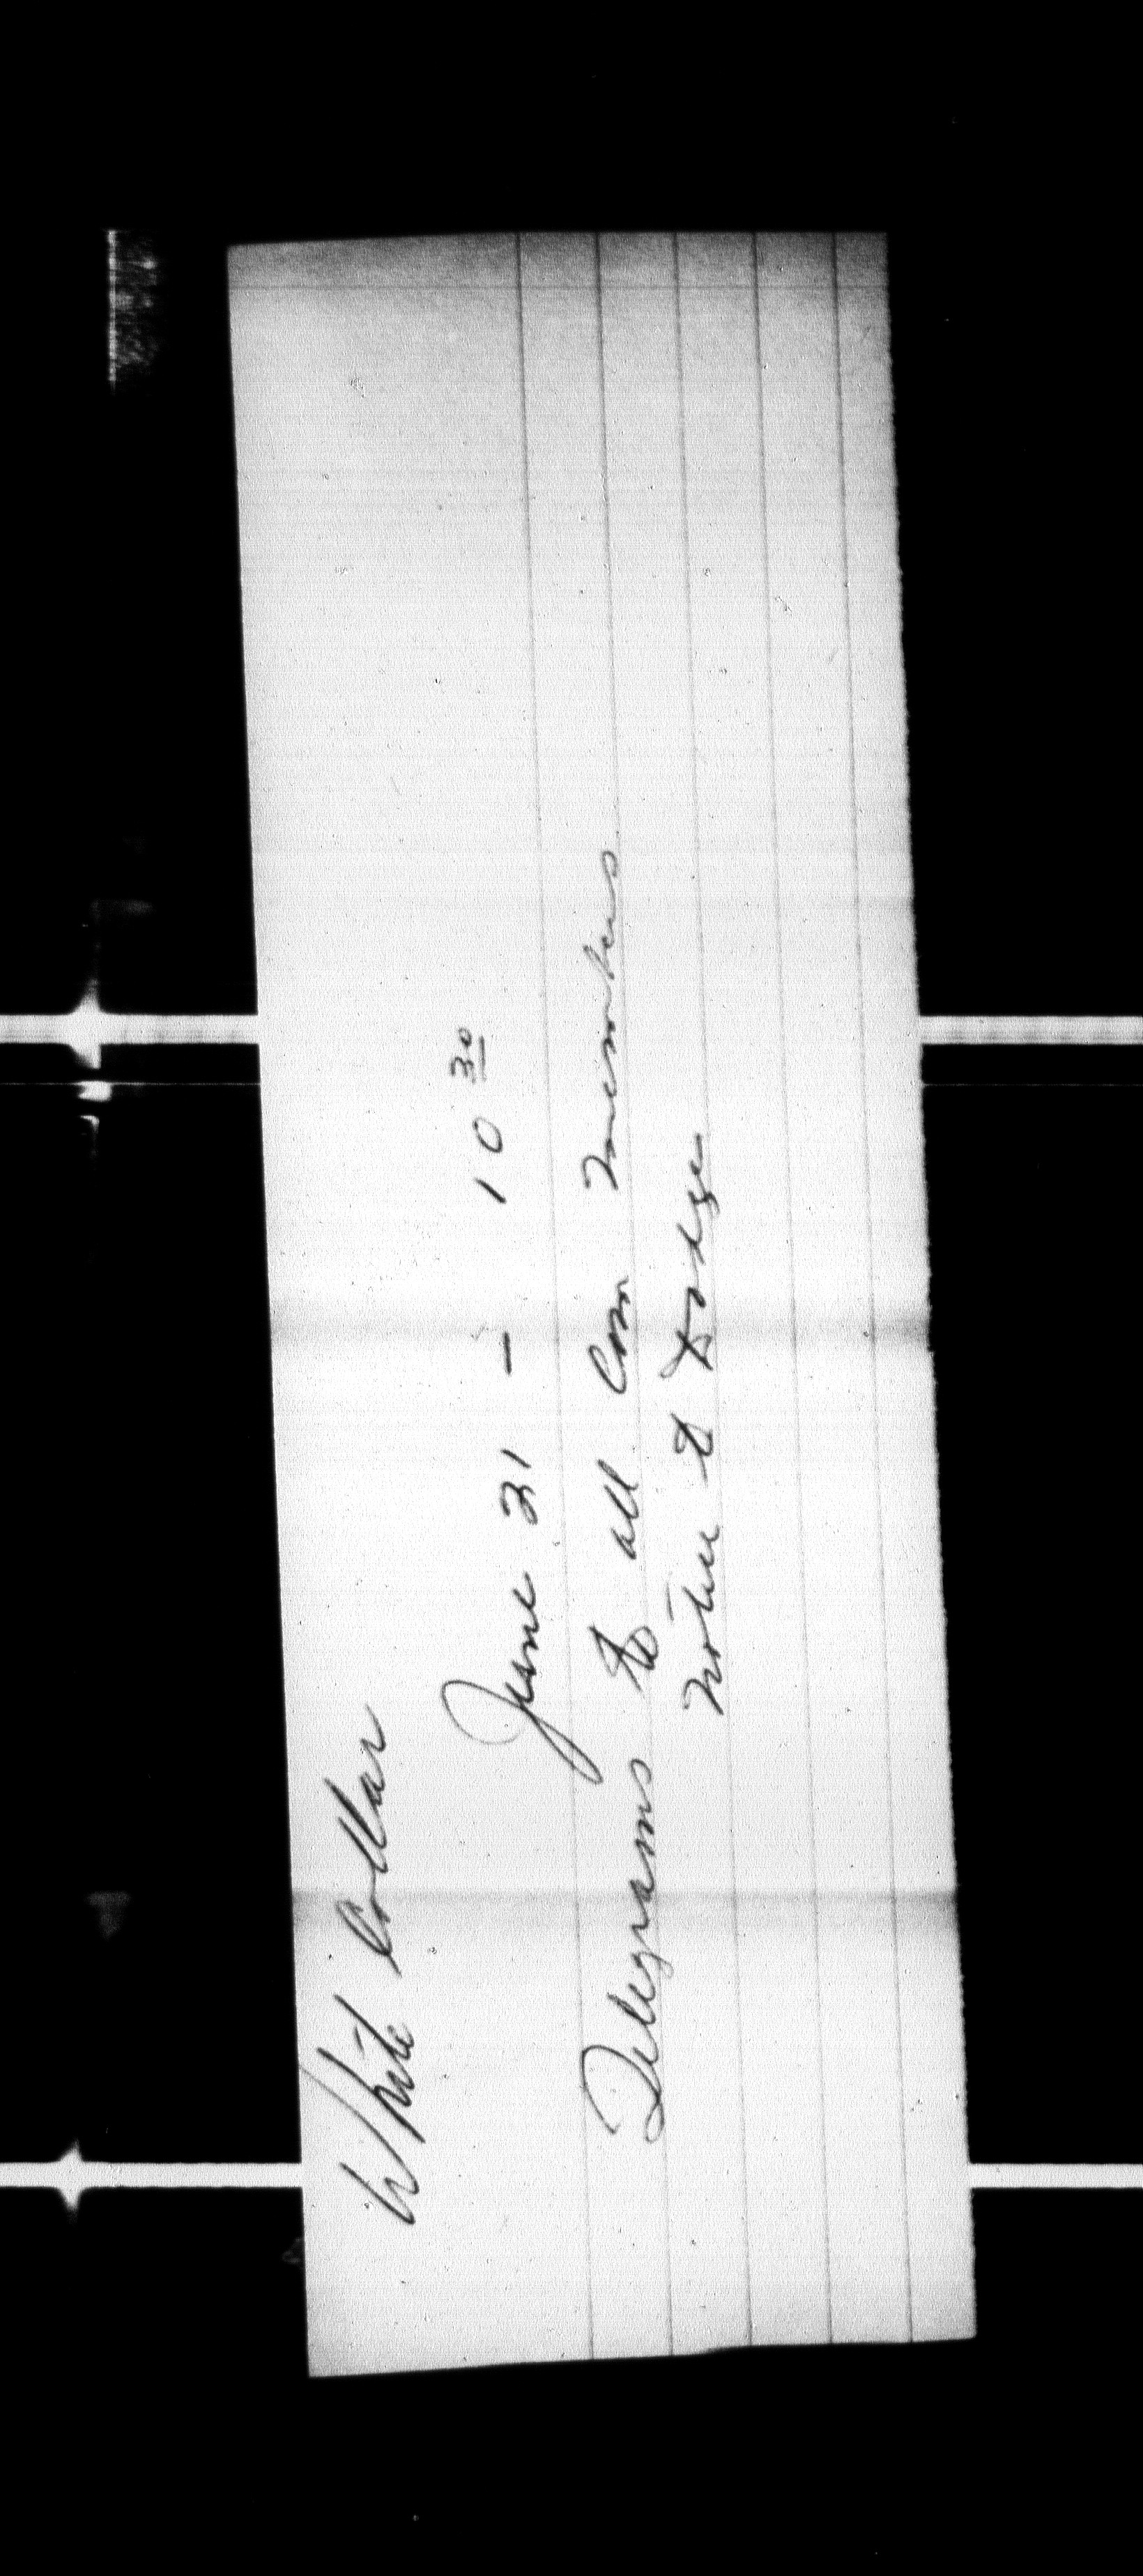 White Collar
June 31 - 10 30
Telegrams to all Com members
Notice to Lodges